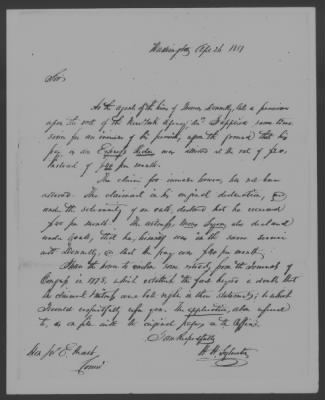 Washington Apl 26 1851
Sir
As the agent of the heirs of Connelly, late a pensioner
upon the roll of the New York Agency &c. I applied some time
since for an increase of his pension, upon the ground that his
pay as an Express Rider was allowed at the rate of
instead of $40 per month.
The claim for increase however, has not been
allowed. The claimant in his original declaration,
under the solemnity of an oath, declared that he received
$40 per month. The witness, also declared
under oath, that he, himself was in the same service
with Connelly, & that the pay was $40 per month.
I have the honor to enclose some extracts from the Journals of
Congress in 1778, which establish the fact beyond a doubt that
the claimant & witness were both right in their statements; to which
I would respectfully refer you. The application, above referred
to, is on file with the original papers in the Office.
I am Respectfully
H. H. Sylvester
Hon J. E. Heath
Comr